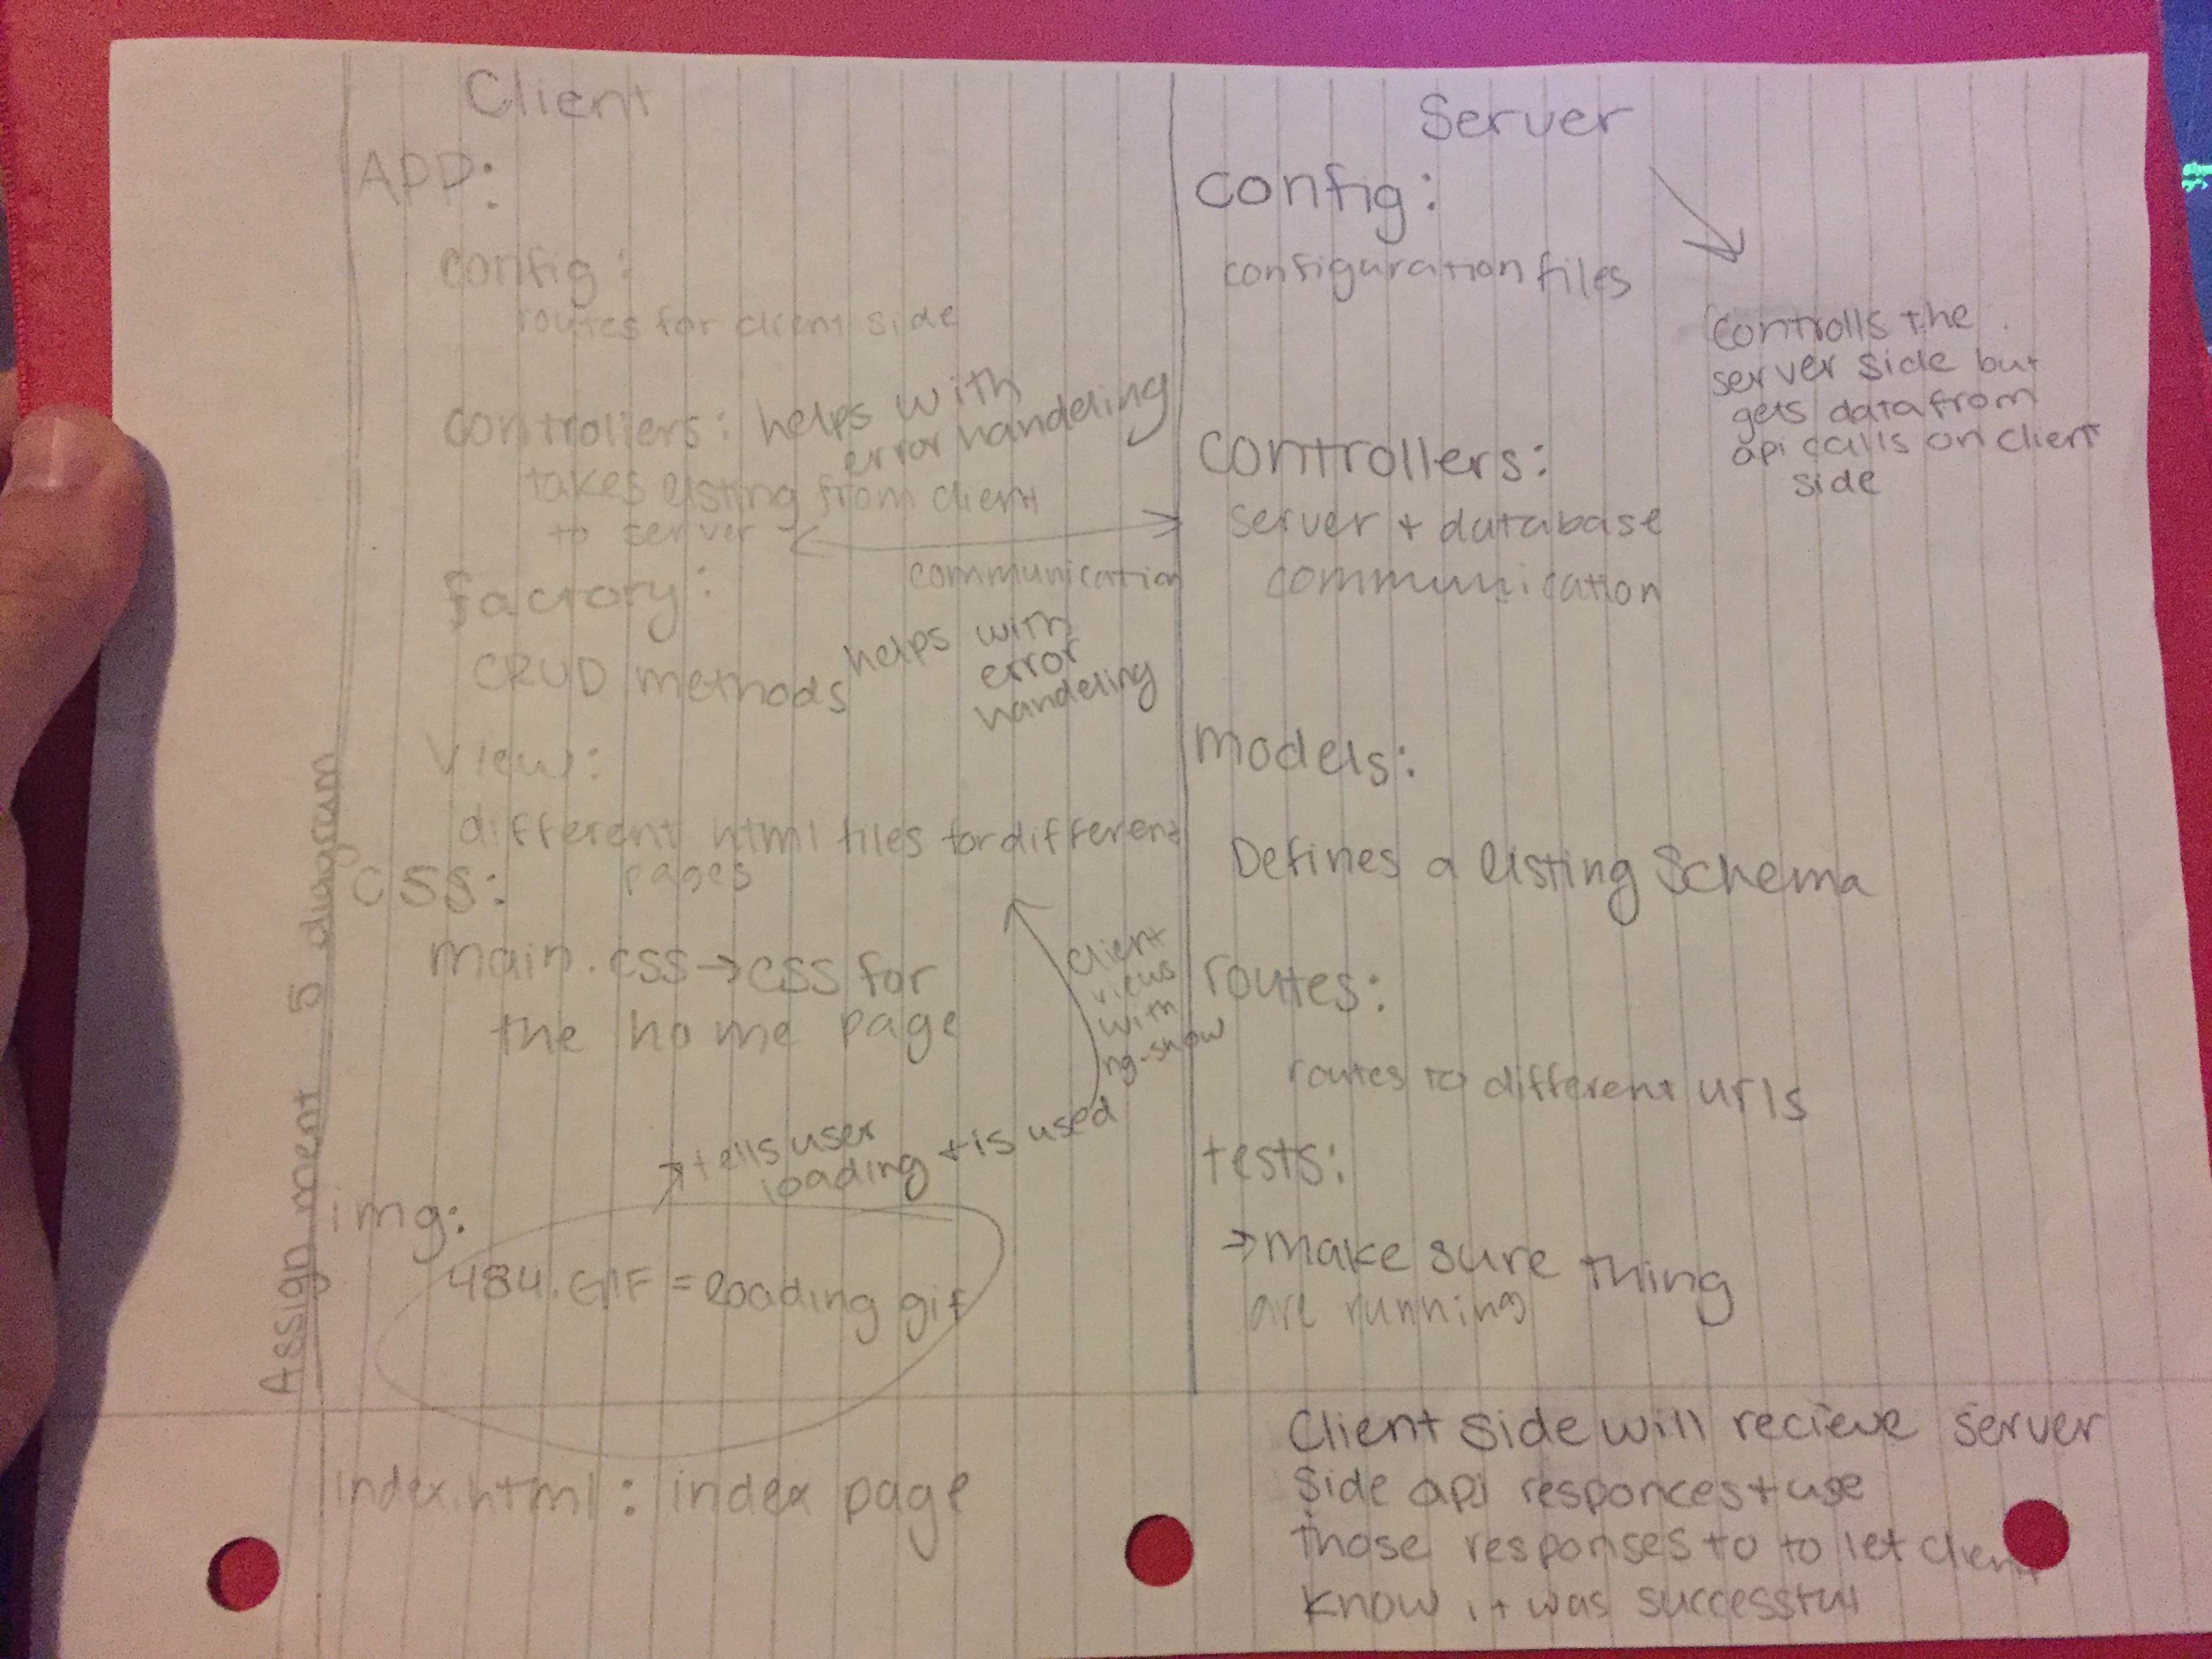 Assignment 5 diagram
Client
APP:
config:
routes for client side
controllers: helps with
error handeling
takes listing from client
to server
communication
factory:
CRUD methods
helps with
error
handeling
View:
different html files for different
pages
CSS:
main.css → css for
the home page
client
views
with
ng-show
→ tells user
loading + is used
img:
484.GIF = loading gif
index.html: index page
Server
config:
configuration files
controlls the
server side but
gets data from
api calls on client
side
controllers:
server + database
communication
models:
Defines a listing Schema
routes:
routes to different urls
tests:
→ make sure thing
are running
Client side will recieve server
side api responces + use
those responses to to let client
know it was successful